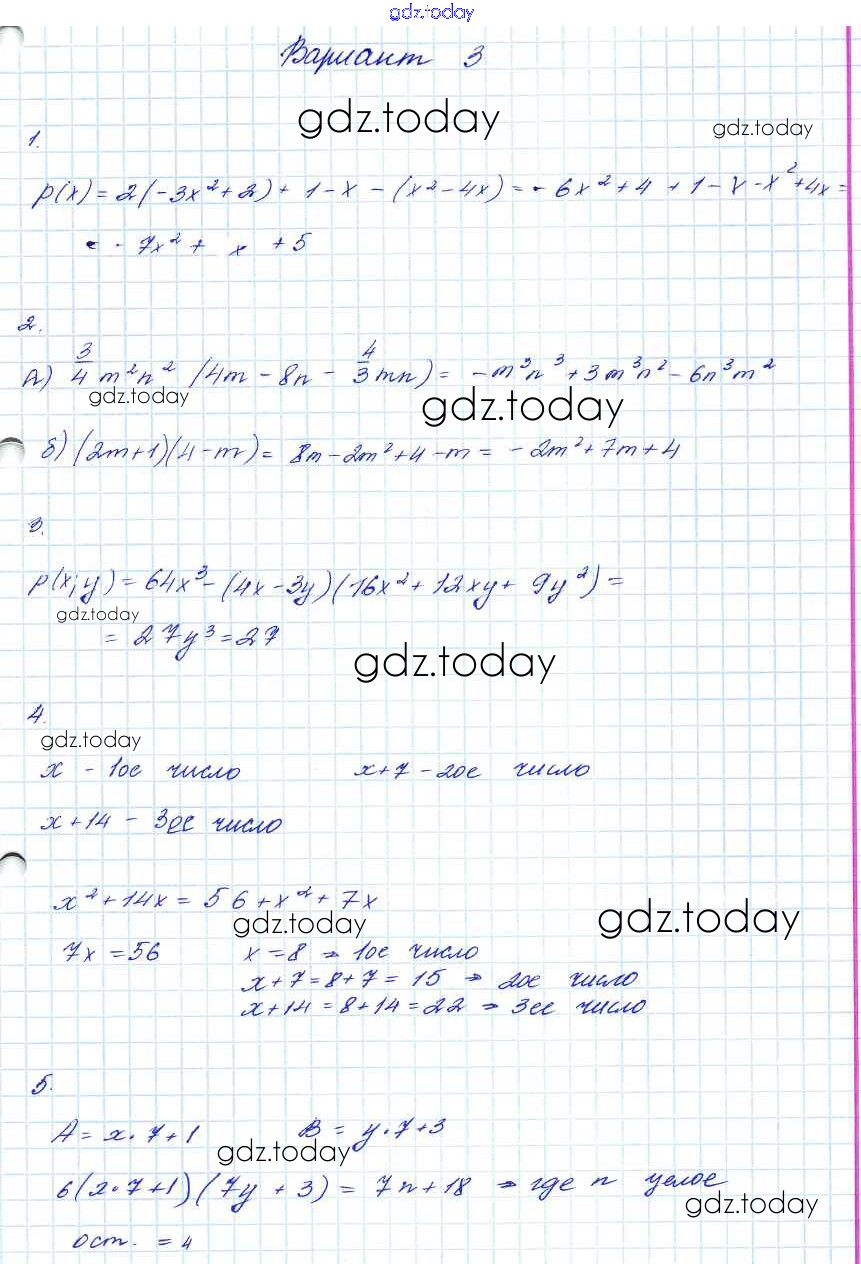 gdz.today
Вариант 3
gdz.today
gdz.today
1.
p(x) = 2(-3x² + 2) + 1 - x - (x² - 4x) = - 6x² + 4 + 1 - x - x² + 4x =
= - 7x² + x + 5
2.
А) 3/4 m²n² (4m - 8n - 4/3 mn) = -m³n³ + 3m³n² - 6n³m²
gdz.today
gdz.today
б) (2m+1)(4-m) = 8m - 2m² + 4 - m = - 2m² + 7m + 4
3.
p(x;y) = 64x³ - (4x - 3y)(16x² + 12xy + 9y²) =
gdz.today
= 27y³ = 27
gdz.today
4.
gdz.today
x - 1ое число x+7 - 2ое число
x+14 - 3ее число
x² + 14x = 56 + x² + 7x
gdz.today
gdz.today
7x = 56 x = 8 → 1ое число
x+7 = 8+7 = 15 → 2ое число
x+14 = 8+14 = 22 → 3ее число
5.
A = x·7+1 B = y·7+3
gdz.today
6(x·7+1)(7y+3) = 7n+18 → где n целое
gdz.today
ост. = 4